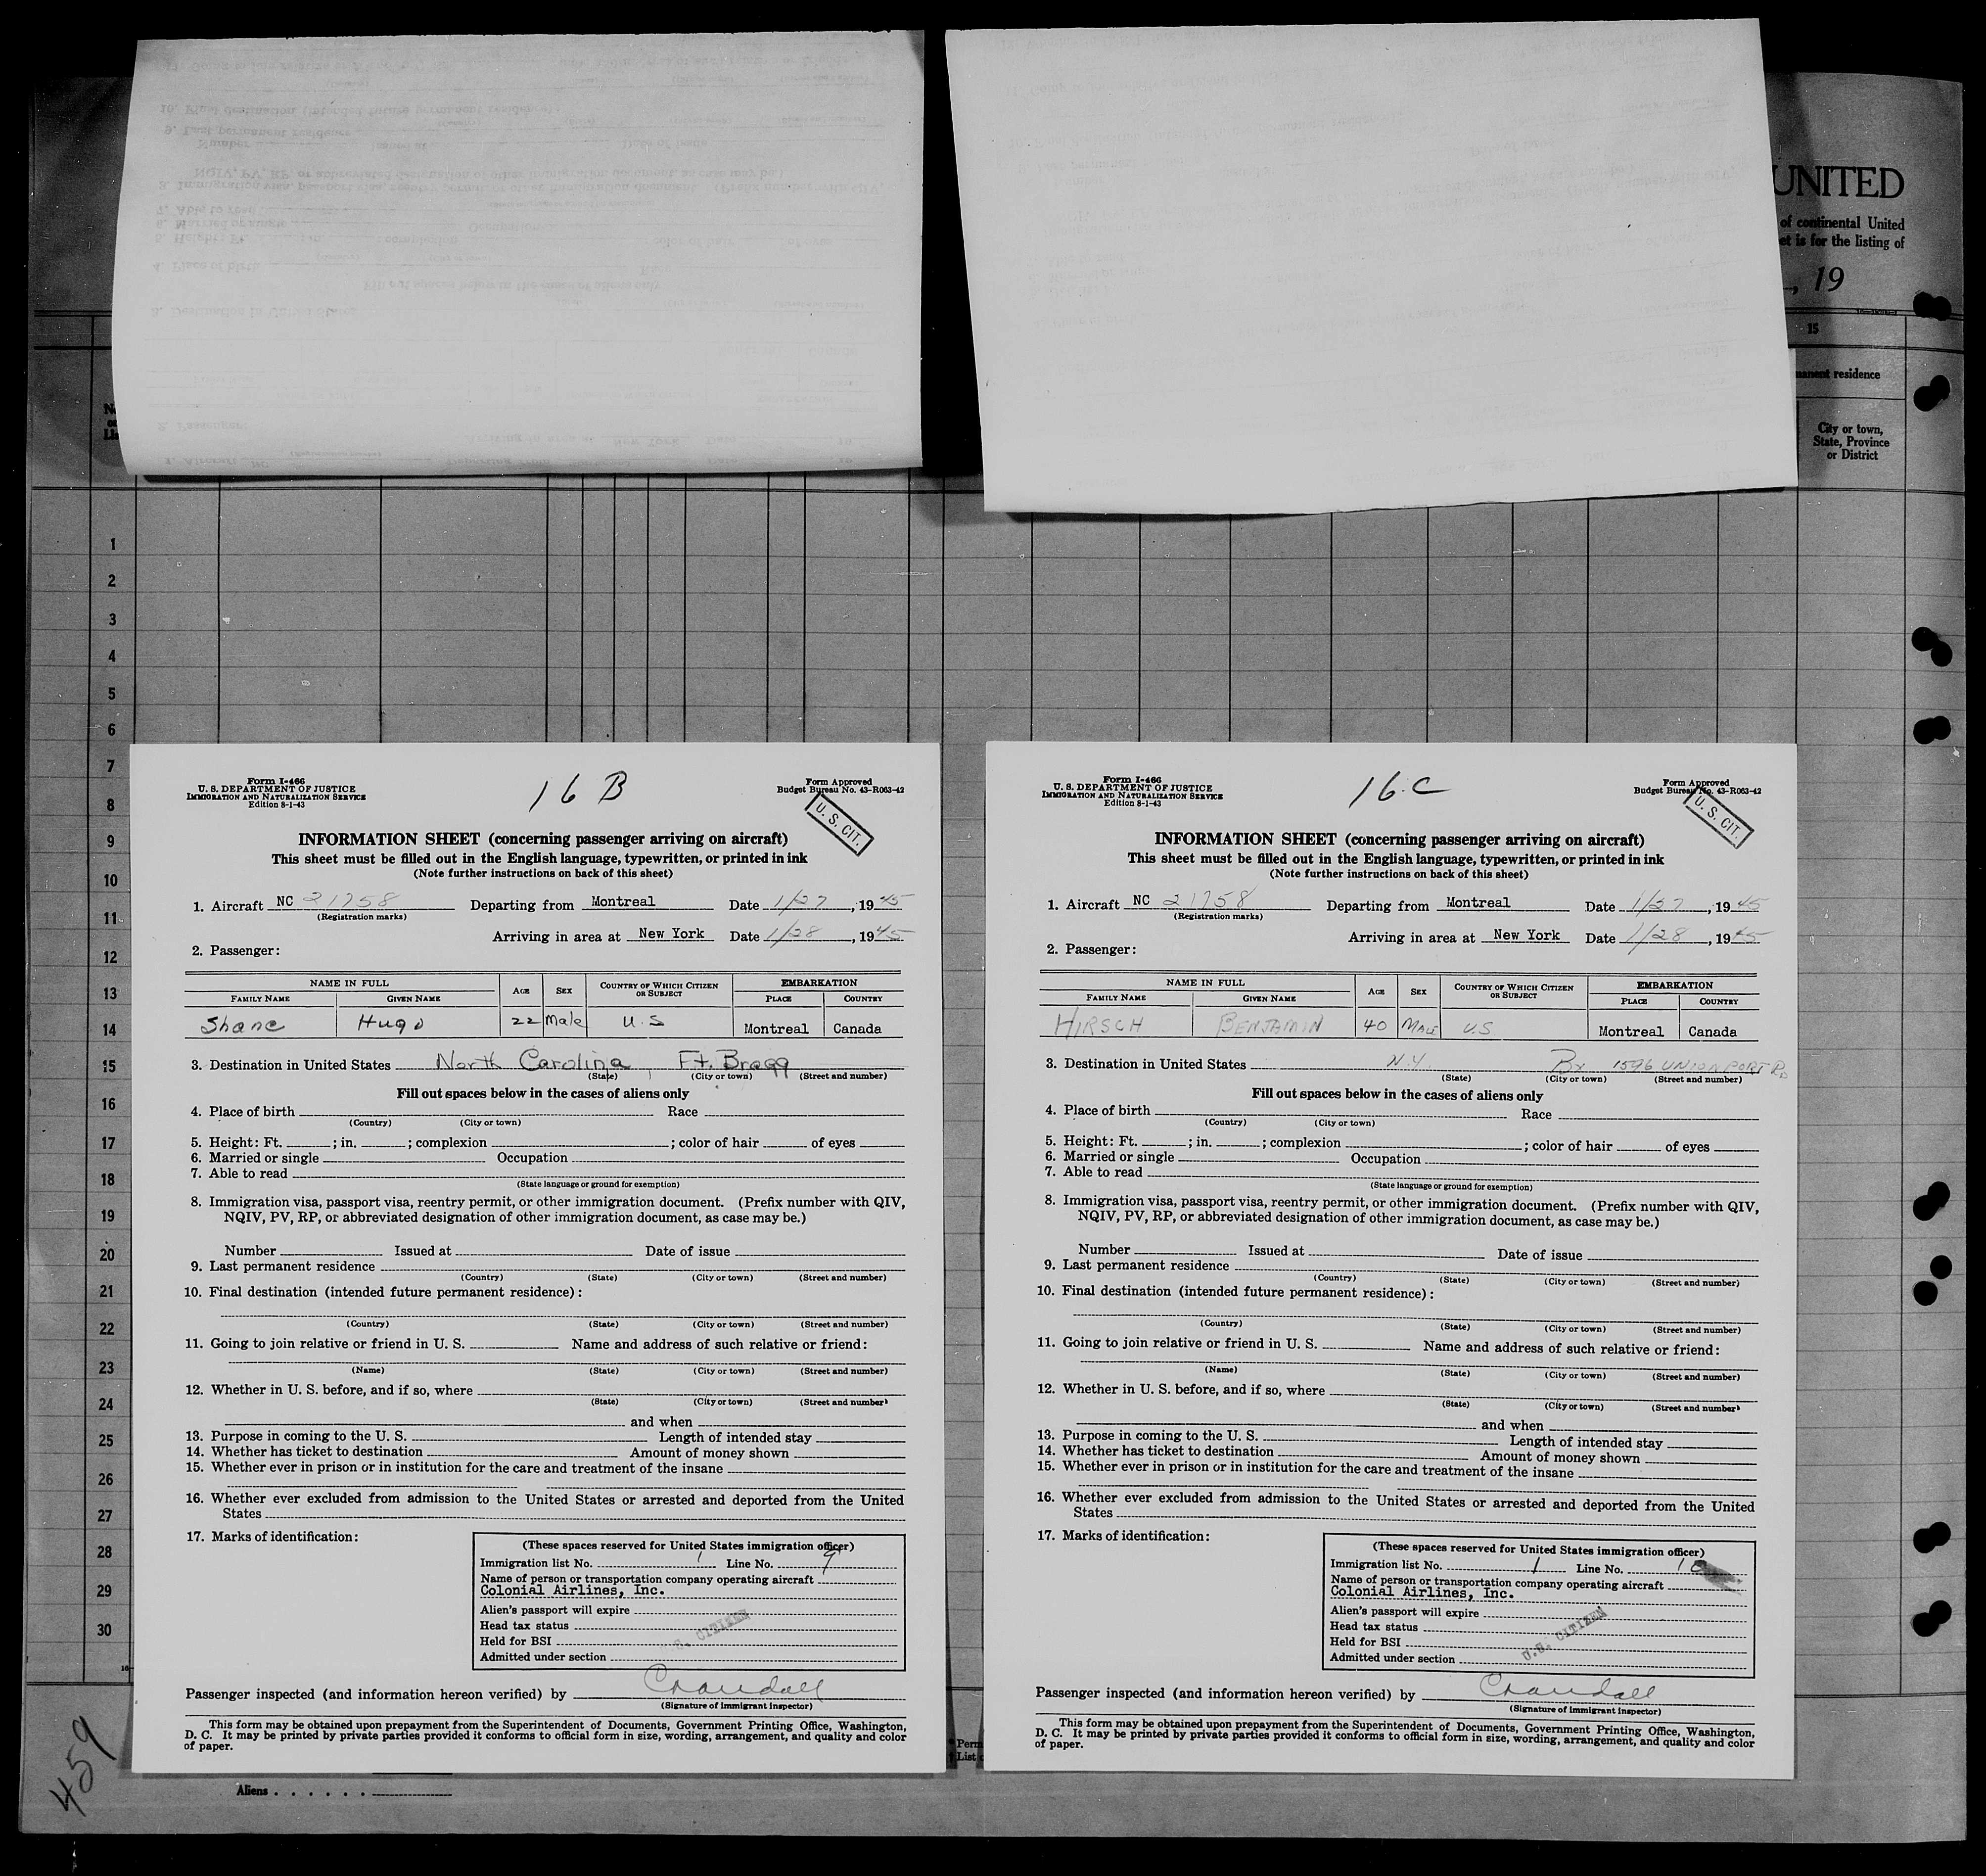 UNITED
of continental United
et is for the listing of
, 19
15
manent residence
City or town,
State, Province
or District
1
2
3
4
5
6
7
8
9
10
11
12
13
14
15
16
17
18
19
20
21
22
23
24
25
26
27
28
29
30
Form I-466
U. S. DEPARTMENT OF JUSTICE
IMMIGRATION AND NATURALIZATION SERVICE
Edition 8-1-43
16 B
Form Approved
Budget Bureau No. 43-R063-42
U. S. CIT.
INFORMATION SHEET (concerning passenger arriving on aircraft)
This sheet must be filled out in the English language, typewritten, or printed in ink
(Note further instructions on back of this sheet)
1. Aircraft NC 21758 Departing from Montreal Date 1/27, 1945
(Registration marks)
Arriving in area at New York Date 1/28, 1945
2. Passenger:
NAME IN FULL AGE SEX COUNTRY OF WHICH CITIZEN OR SUBJECT EMBARKATION
FAMILY NAME GIVEN NAME PLACE COUNTRY
Shane Hugo 22 Male U.S Montreal Canada
3. Destination in United States North Carolina, Ft. Bragg
(State) (City or town) (Street and number)
Fill out spaces below in the cases of aliens only
4. Place of birth Race
(Country) (City or town)
5. Height: Ft. ; in. ; complexion ; color of hair of eyes
6. Married or single Occupation
7. Able to read
(State language or ground for exemption)
8. Immigration visa, passport visa, reentry permit, or other immigration document. (Prefix number with QIV,
NQIV, PV, RP, or abbreviated designation of other immigration document, as case may be.)
Number Issued at Date of issue
9. Last permanent residence
(Country) (State) (City or town) (Street and number)
10. Final destination (intended future permanent residence):
(Country) (State) (City or town) (Street and number)
11. Going to join relative or friend in U. S. Name and address of such relative or friend:
(Name) (State) (City or town) (Street and number)
12. Whether in U. S. before, and if so, where
(State) (City or town) (Street and number)
and when
13. Purpose in coming to the U. S. Length of intended stay
14. Whether has ticket to destination Amount of money shown
15. Whether ever in prison or in institution for the care and treatment of the insane
16. Whether ever excluded from admission to the United States or arrested and deported from the United
States
17. Marks of identification:
(These spaces reserved for United States immigration officer)
Immigration list No. 1 Line No. 9
Name of person or transportation company operating aircraft
Colonial Airlines, Inc.
Alien's passport will expire
Head tax status
Held for BSI
Admitted under section
U.S. CITIZEN
Passenger inspected (and information hereon verified) by Crandall
(Signature of immigrant inspector)
This form may be obtained upon prepayment from the Superintendent of Documents, Government Printing Office, Washington,
D. C. It may be printed by private parties provided it conforms to official form in size, wording, arrangement, and quality and color
of paper.
Form I-466
U. S. DEPARTMENT OF JUSTICE
IMMIGRATION AND NATURALIZATION SERVICE
Edition 8-1-43
16 C
Form Approved
Budget Bureau No. 43-R063-42
U. S. CIT.
INFORMATION SHEET (concerning passenger arriving on aircraft)
This sheet must be filled out in the English language, typewritten, or printed in ink
(Note further instructions on back of this sheet)
1. Aircraft NC 21758 Departing from Montreal Date 1/27, 1945
(Registration marks)
Arriving in area at New York Date 1/28, 1945
2. Passenger:
NAME IN FULL AGE SEX COUNTRY OF WHICH CITIZEN OR SUBJECT EMBARKATION
FAMILY NAME GIVEN NAME PLACE COUNTRY
HIRSCH BENJAMIN 40 MALE U.S Montreal Canada
3. Destination in United States N.Y. Bx 1596 UNIONPORT RD
(State) (City or town) (Street and number)
Fill out spaces below in the cases of aliens only
4. Place of birth Race
(Country) (City or town)
5. Height: Ft. ; in. ; complexion ; color of hair of eyes
6. Married or single Occupation
7. Able to read
(State language or ground for exemption)
8. Immigration visa, passport visa, reentry permit, or other immigration document. (Prefix number with QIV,
NQIV, PV, RP, or abbreviated designation of other immigration document, as case may be.)
Number Issued at Date of issue
9. Last permanent residence
(Country) (State) (City or town) (Street and number)
10. Final destination (intended future permanent residence):
(Country) (State) (City or town) (Street and number)
11. Going to join relative or friend in U. S. Name and address of such relative or friend:
(Name) (State) (City or town) (Street and number)
12. Whether in U. S. before, and if so, where
(State) (City or town) (Street and number)
and when
13. Purpose in coming to the U. S. Length of intended stay
14. Whether has ticket to destination Amount of money shown
15. Whether ever in prison or in institution for the care and treatment of the insane
16. Whether ever excluded from admission to the United States or arrested and deported from the United
States
17. Marks of identification:
(These spaces reserved for United States immigration officer)
Immigration list No. 1 Line No. 10
Name of person or transportation company operating aircraft
Colonial Airlines, Inc.
Alien's passport will expire
Head tax status
Held for BSI
Admitted under section
U.S. CITIZEN
Passenger inspected (and information hereon verified) by Crandall
(Signature of immigrant inspector)
This form may be obtained upon prepayment from the Superintendent of Documents, Government Printing Office, Washington,
D. C. It may be printed by private parties provided it conforms to official form in size, wording, arrangement, and quality and color
of paper.
459
Aliens
Perm
List